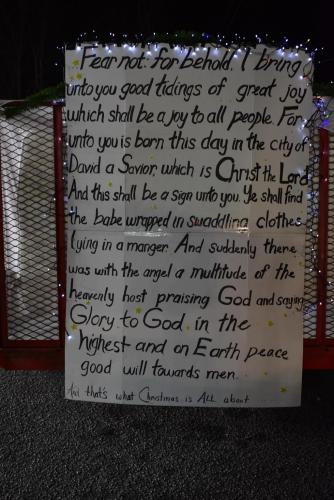 Fear not: for behold, I bring
unto you good tidings of great joy
which shall be a joy to all people. For
unto you is born this day in the city of
David a Savior, which is Christ the Lord
And this shall be a sign unto you. Ye shall find
the babe wrapped in swaddling clothes
lying in a manger. And suddenly there
was with the angel a multitude of the
heavenly host praising God and saying
Glory to God in the
highest and on Earth peace
good will towards men.
And that's what Christmas is All about